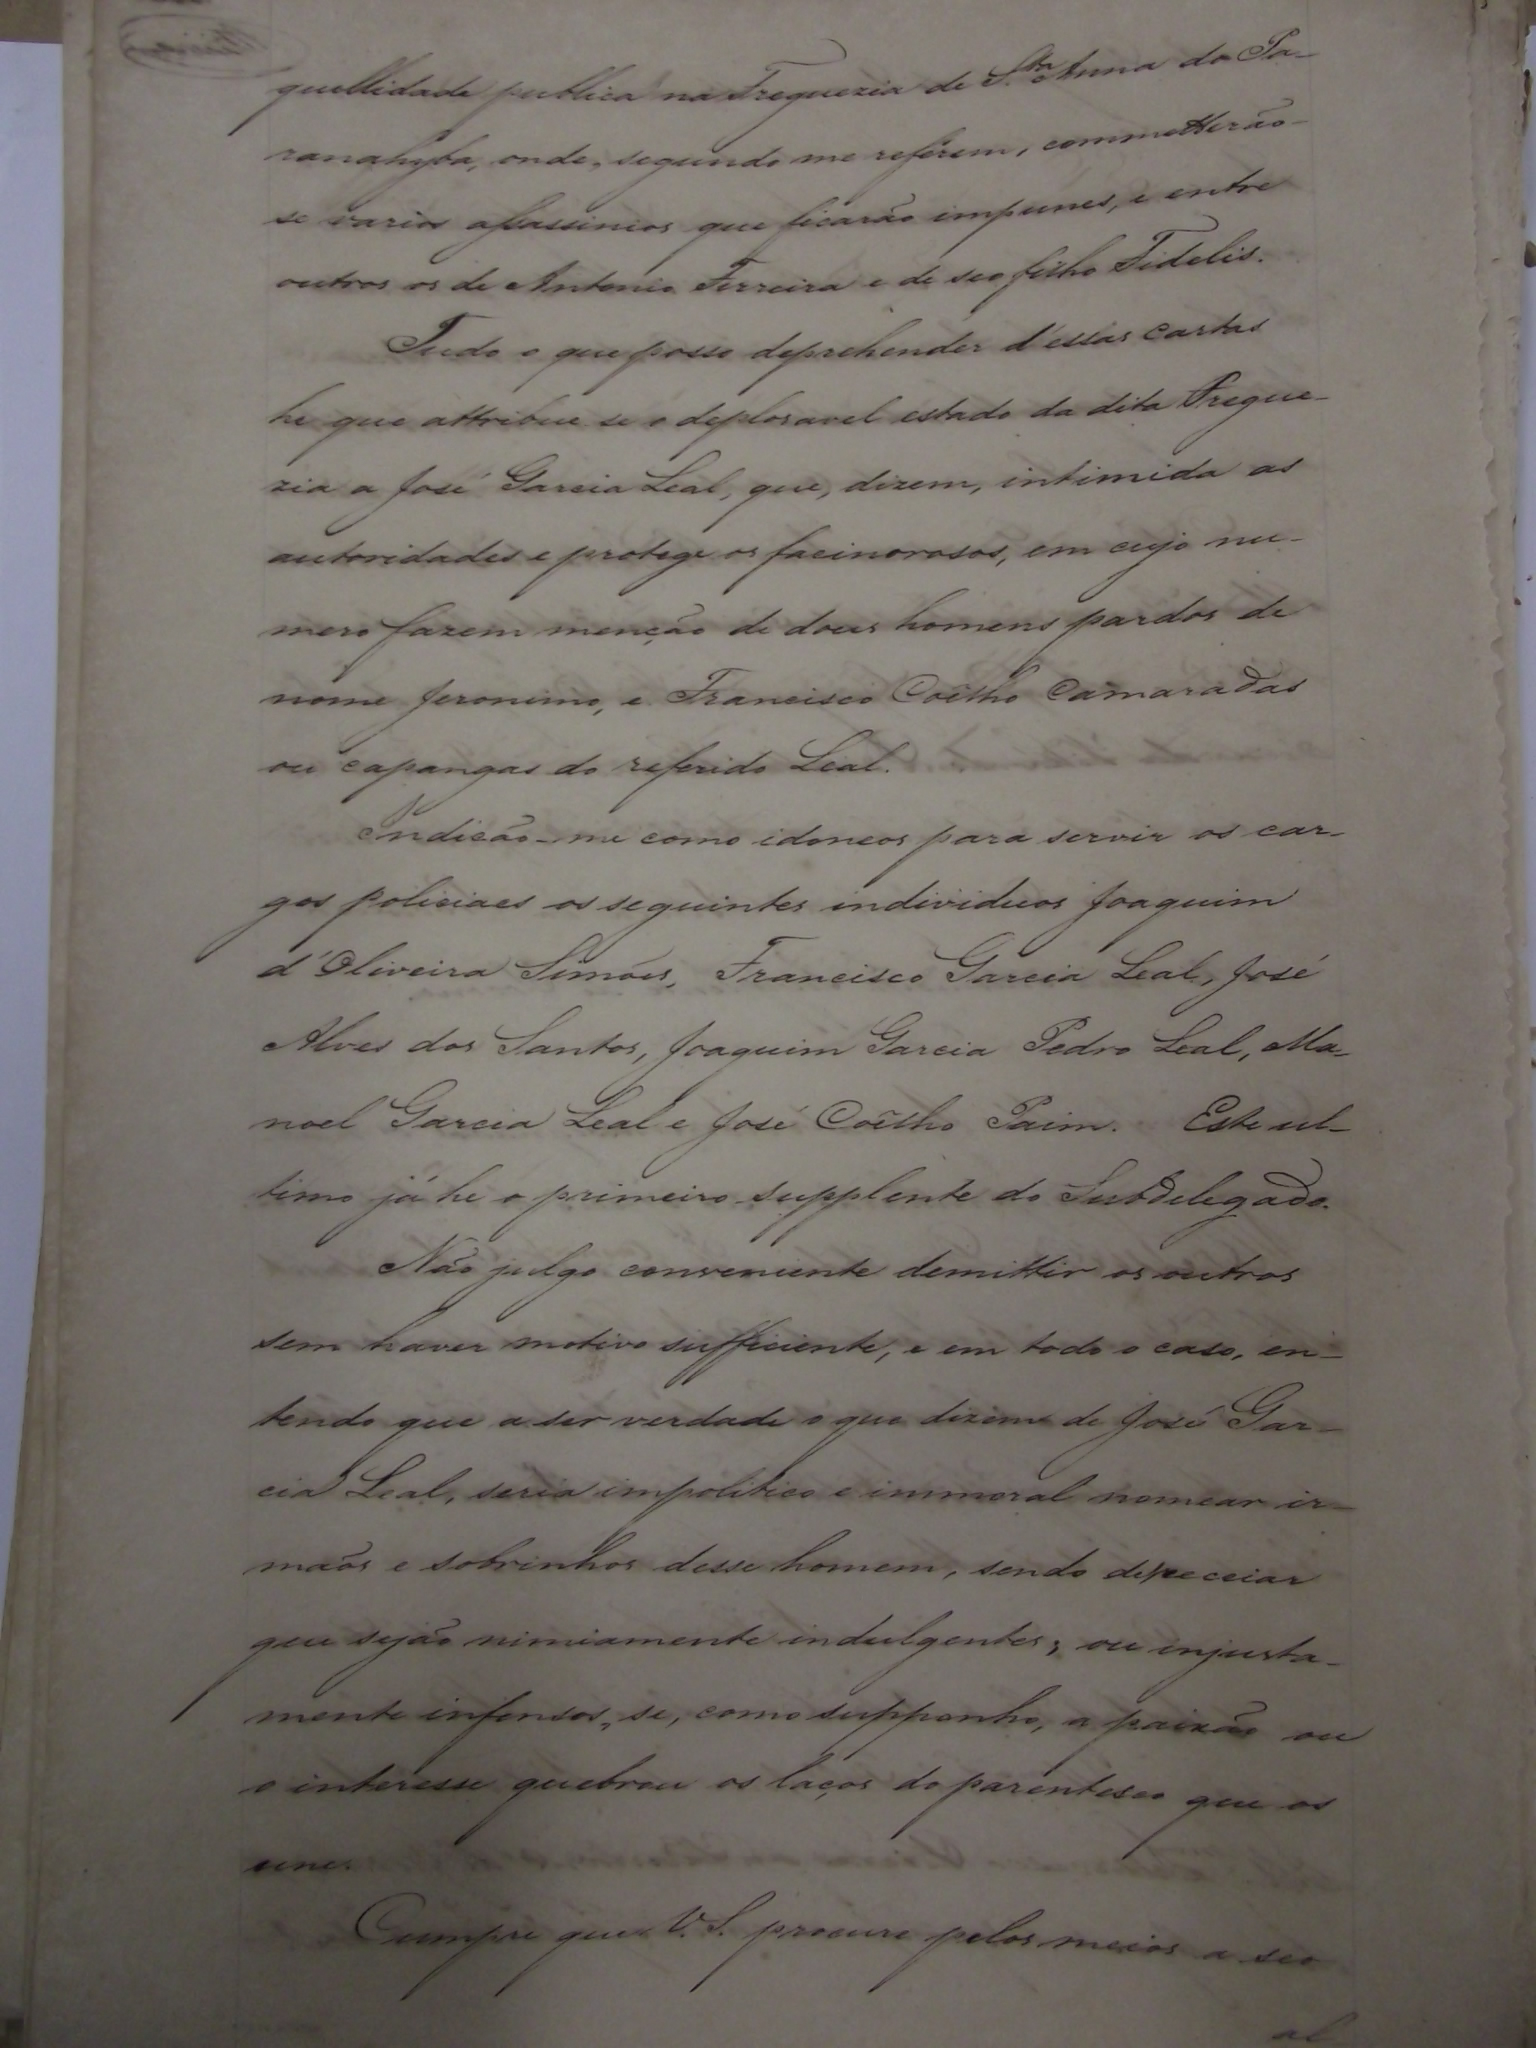 quillidade publica na Freguezia de S.ta Anna do Pa-
ranahyba, onde, segundo me referem, commetterão-
se varios assassinios que ficarão impunes, e entre
outros os de Antonio Ferreira e de seo filho Fidelis.
Tudo o que posso deprehender d'essas cartas
he que attribue se o deploravel estado da dita Fregue-
zia a José Garcia Leal, que, dizem, intimida as
autoridades e protege os facinorosos, em cujo nu-
mero fazem menção de dous homens pardos de
nome Jeronimo, e Francisco Coêlho Camaradas
ou capangas do referido Leal.
Indicão-me como idoneos para servir os car-
gos policiaes os seguintes individuos Joaquim
d'Oliveira Simões, Francisco Garcia Leal, José
Alves dos Santos, Joaquim Garcia Pedro Leal, Ma-
noel Garcia Leal e José Coêlho Paim. Este ul-
timo já he o primeiro supplente do Subdelegado.
Não julgo conveniente demittir os outros
sem haver motivo sufficiente, e em todo o caso, en-
tendo que a ser verdade o que dizem de José Gar-
cia Leal, seria impolitico e immoral nomear ir-
mãos e sobrinhos desse homem, sendo de receiar
que sejão nimiamente indulgentes, ou injusta-
mente infensos, se, como supponho, a paixão ou
o interesse quebrou os laços do parentesco que os
une.
Cumpre que V. S. procure pelos meios a seo
al